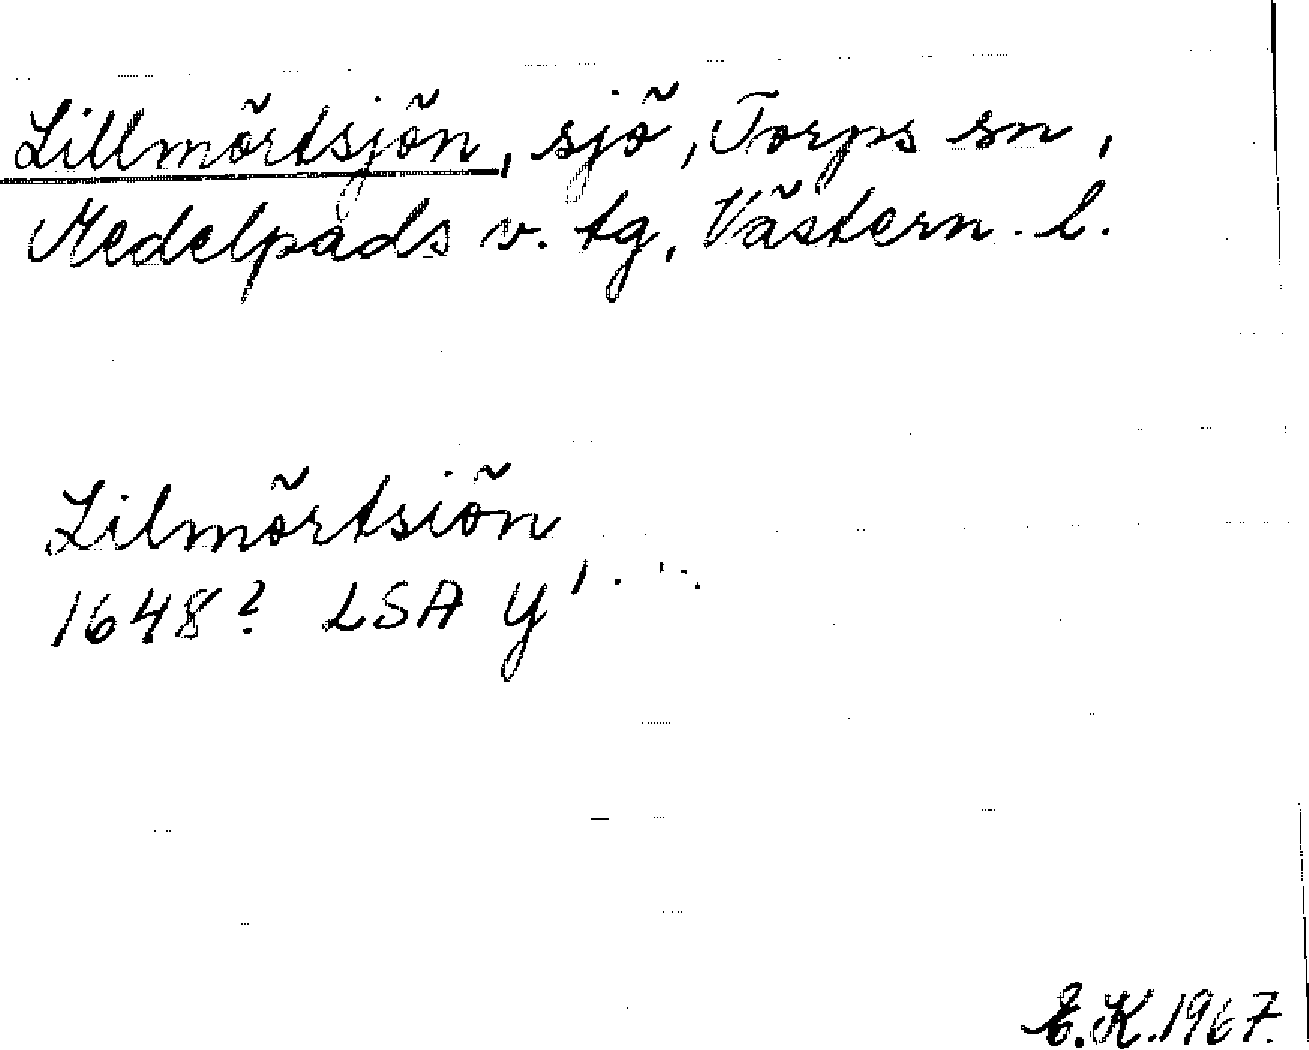 Lillmörtsjön, sjö, Torps sn,
Medelpads v. tg, Västern. l.
Lilmörtsiön
1648? LSA Y
E.K. 1967.